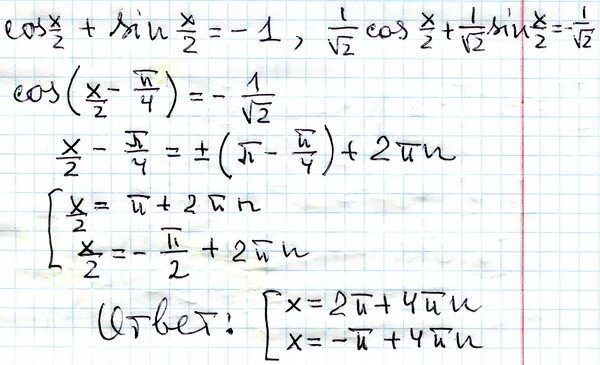 cos x/2 + sin x/2 = -1, 1/√2 cos x/2 + 1/√2 sin x/2 = -1/√2
cos(x/2 - π/4) = -1/√2
x/2 - π/4 = ±(π - π/4) + 2πn
[x/2 = π + 2πn
x/2 = -π/2 + 2πn
Ответ: [x = 2π + 4πn
x = -π + 4πn